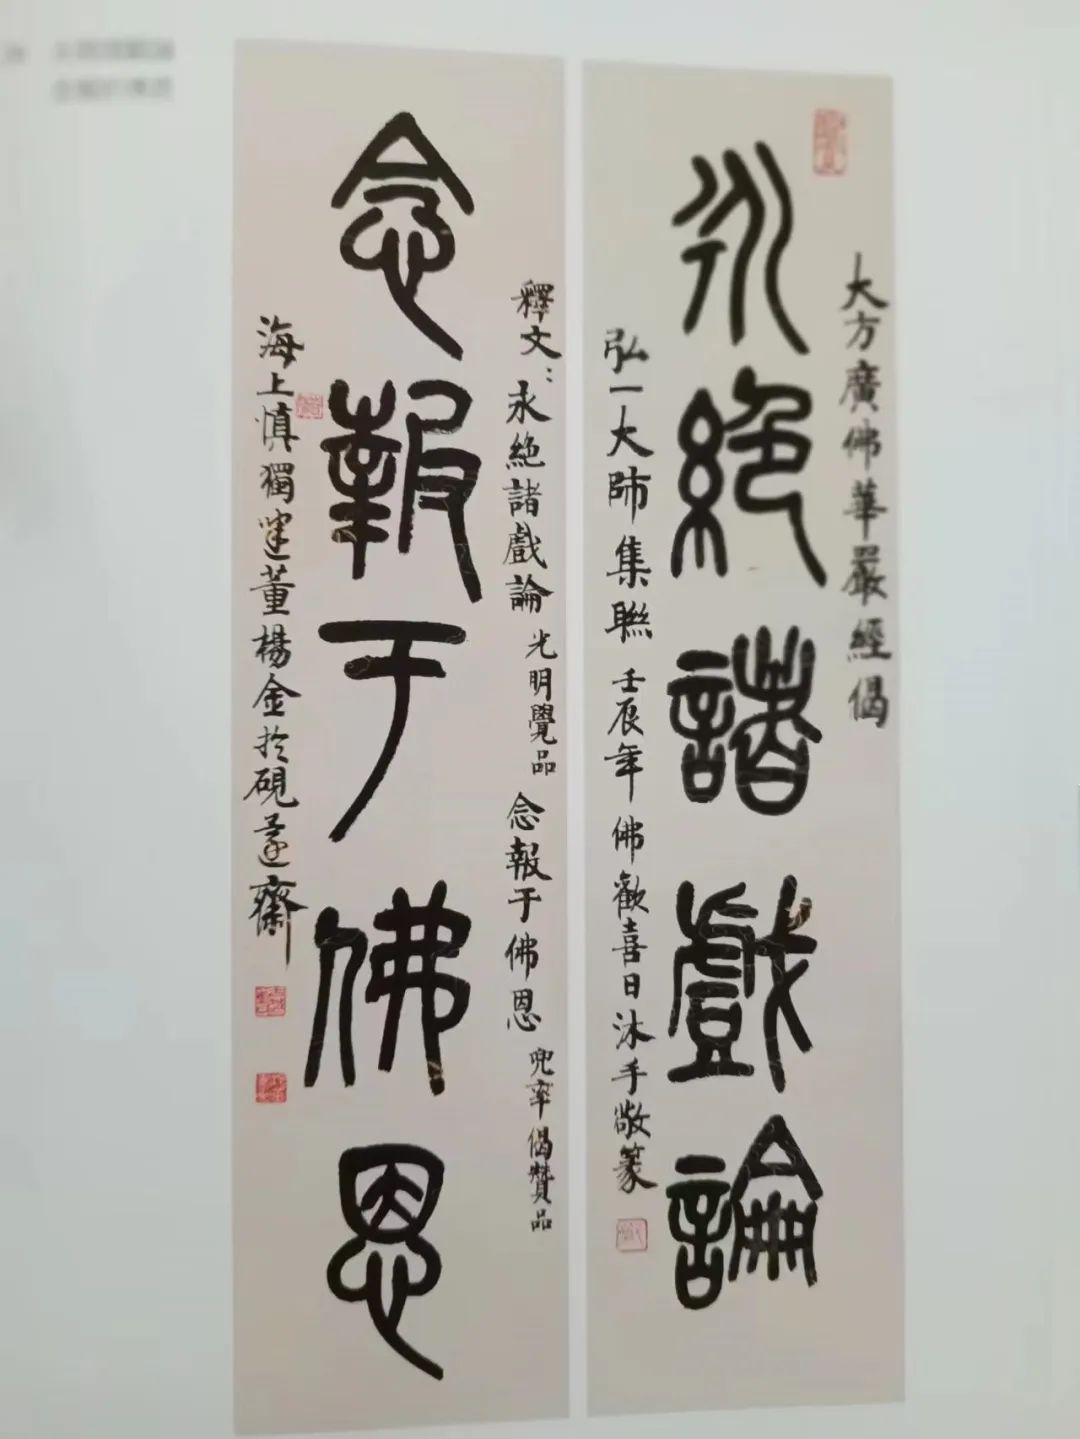 大方廣佛華嚴經偈
永絕諸戲論
弘一大師集聯 壬辰年佛歡喜日沐手敬篆
釋文：永絕諸戲論 光明覺品 念報于佛恩 兜率偈贊品
念報于佛恩
海上慎獨建董楊金於硯邃齋